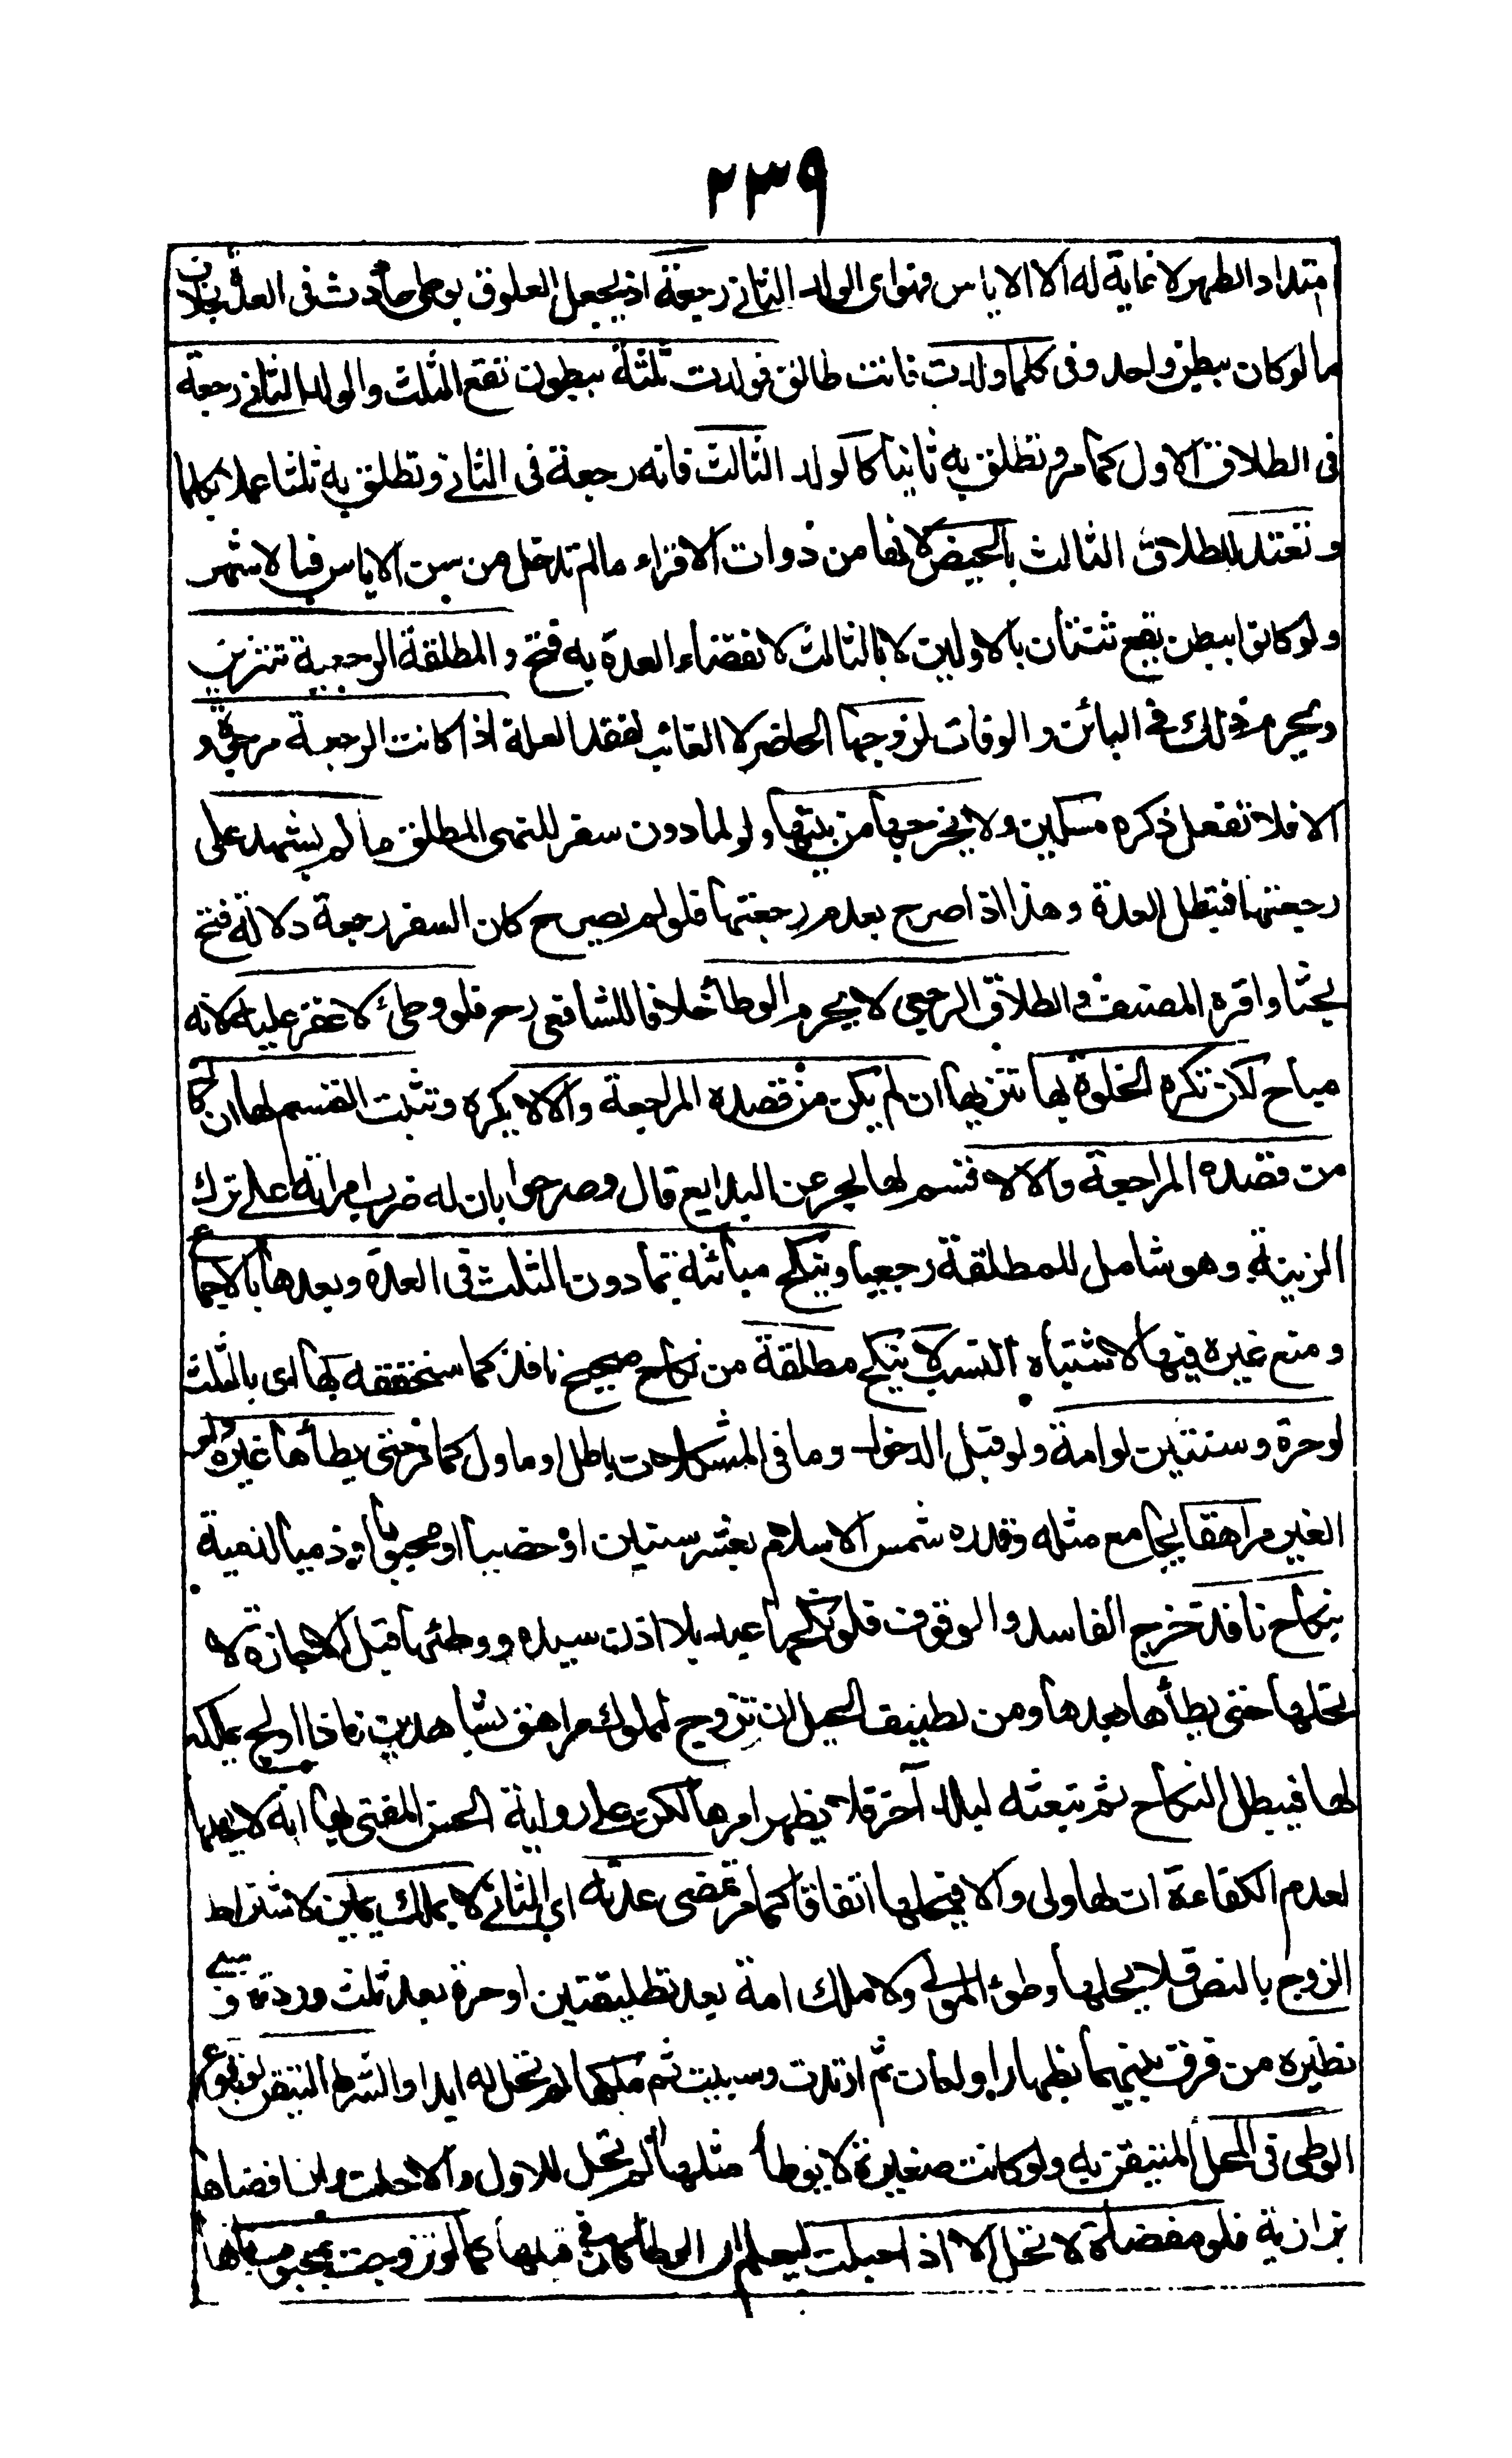 ٢٣٩
امتداد الطهر لا غاية له الا الاياس فهو اى الولد الثانى رجعة اذ يجعل العلوق بوطى حادث فى العدة بخلاف
ما لو كان ببطن واحد وفى كلما ولدت فانت طالق فولدت ثلثة ببطون تقع الثلث والولد الثانى رجعة
فى الطلاق الاول كما مر وتطلق به ثانيا كالولد الثالث فانه رجعة فى الثانى وتطلق به ثلثا عملا بكلما
وتعتد للطلاق الثالث بالحيض لانها من ذوات الاقراء ما لم تدخل من سن الاياس فبالاشهر
ولو كانوا ببطن يقع ثنتان بالاولين لا بالثالث لانقضاء العدة به فتح والمطلقة الرجعية تتزين
ويحرم ذلك فى البائن والوفات لزوجها الحاضر لا الغائب لفقد العلة اذا كانت الرجعة مرجوة و
الا فلا تفعل ذكره مسكين ولا يخرجها من بيتها ولو لما دون سفر للنهى المطلق ما لم يشهد على
رجعتها فتبطل العدة وهذا اذا صرح بعدم رجعتها فلو لم يصرح كان السفر رجعة دلالة فتح
بحثا واقره المصنف والطلاق الرجعى لا يحرم الوطأ خلافا للشافعى رح فلو وطئ لا عقر عليه لانه
مباح لكن تكره الخلوة بها تنزيها ان لم يكن من قصده المراجعة والا لا يكره وتثبت القسم لها ان كان
من قصده المراجعة والا لا قسم لها بحر عن البدايع قال وصرحوا بان له ضرب امرأته على ترك
الزينة وهو شامل للمطلقة رجعيا وينكح مبانته بما دون الثلث فى العدة وبعدها بالاجماع
ومنع غيره فيها لاشتباه النسب لا ينكح مطلقة من نكاح صحيح نافذ كما سنحققه بها اى بالثلث
لو حرة وسنتين لو امة ولو قبل الدخول وما فى المشكلات باطل او ماول كما مر حتى يطأها غيره ولو
الغير مراهقا يجامع مثله وقدره شمس الاسلام بعشر سنين او خصيا او مجنونا او ذميا لذمية
بنكاح نافذ خرج الفاسد والموقوف فلو نكحها عبد بلا اذن سيده ووطئها قبل الاجازة لا
تحلها حتى يطأها بعدها ومن لطيف الحيل ان تزوج لمملوك مراهق بشاهدين فاذا اولج يملكه
لها فيبطل النكاح ثم تبعثه لبلد آخر فلا يظهر امرها لكن على رواية الحسن المفتى بها انه لا يحلها
لعدم الكفاءة ان لها ولى والا فيحلها اتفاقا كما مر وتمضى عدته اى الثانى لا بملك يمين لاشتراط
الزوج بالنص فلا يحلها وطئ المولى ولا ملك امة بعد تطليقتين او حرة بعد ثلث وردة وسبى
نظيره من فرق بينهما بظهار او لعان ثم ارتدت وسبيت ثم ملكها لم تحل له ابدا والشرط التيقن بوقوع
الوطى فى المحل المتيقن به ولو كانت صغيرة لا يوطأ مثلها لم تحل للاول والا حلت وان افضاها
بزازية فلو مفضاة لا تحل الا اذا حبلت ليعلم ان الوطأ كان فى قبلها كما لو تزوجت بمجبوب فانها